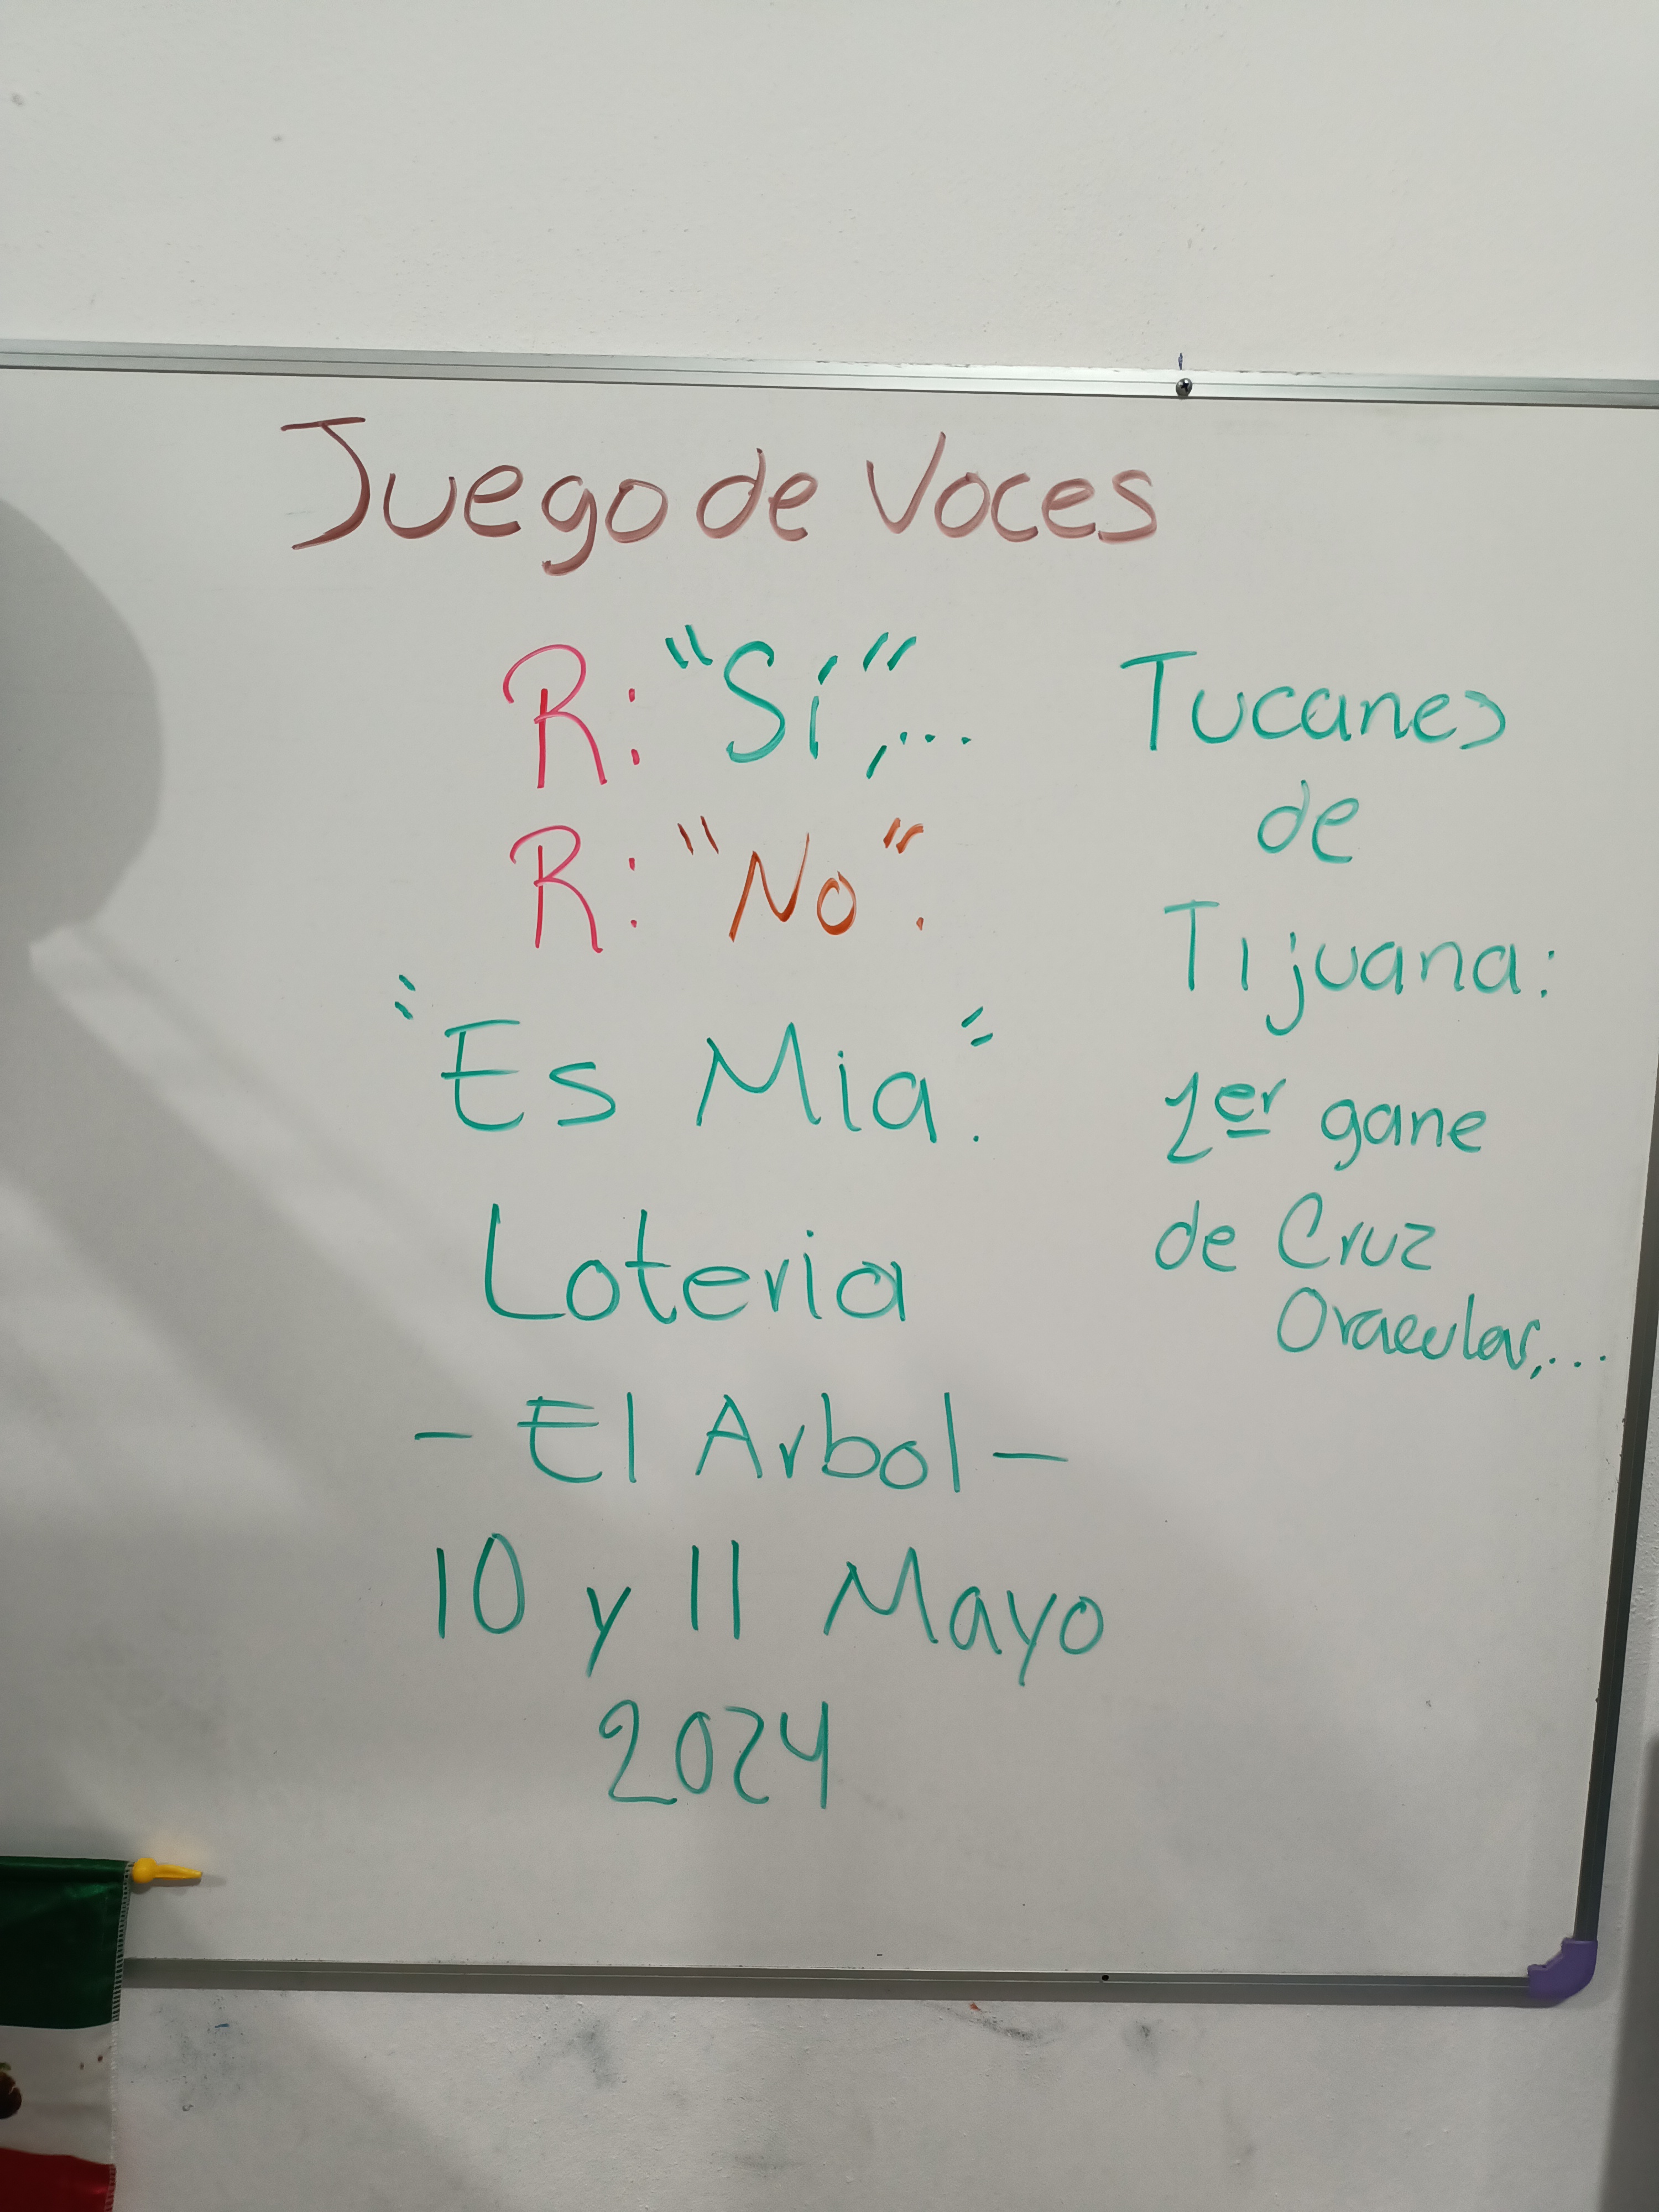 Juego de Voces
R: "Sí",...
R: "No".
"Es Mia".
Loteria
- El Arbol -
10 y 11 Mayo
2024
Tucanes
de
Tijuana:
1er gane
de Cruz
Oracular,...